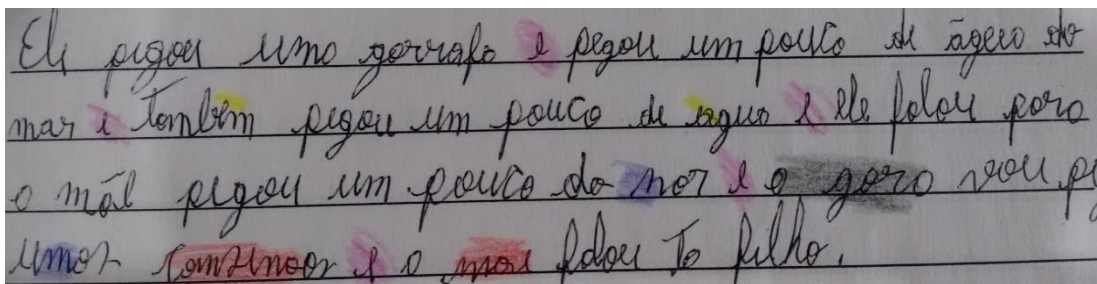 Ele pegou uma garrafa e pegou um pouco de ágeua do
mar e também pegou um pouco de agua e ele falou para
o mãe pegou um pouco do mar e o gora vou pe
umar e o mae falou To filho.